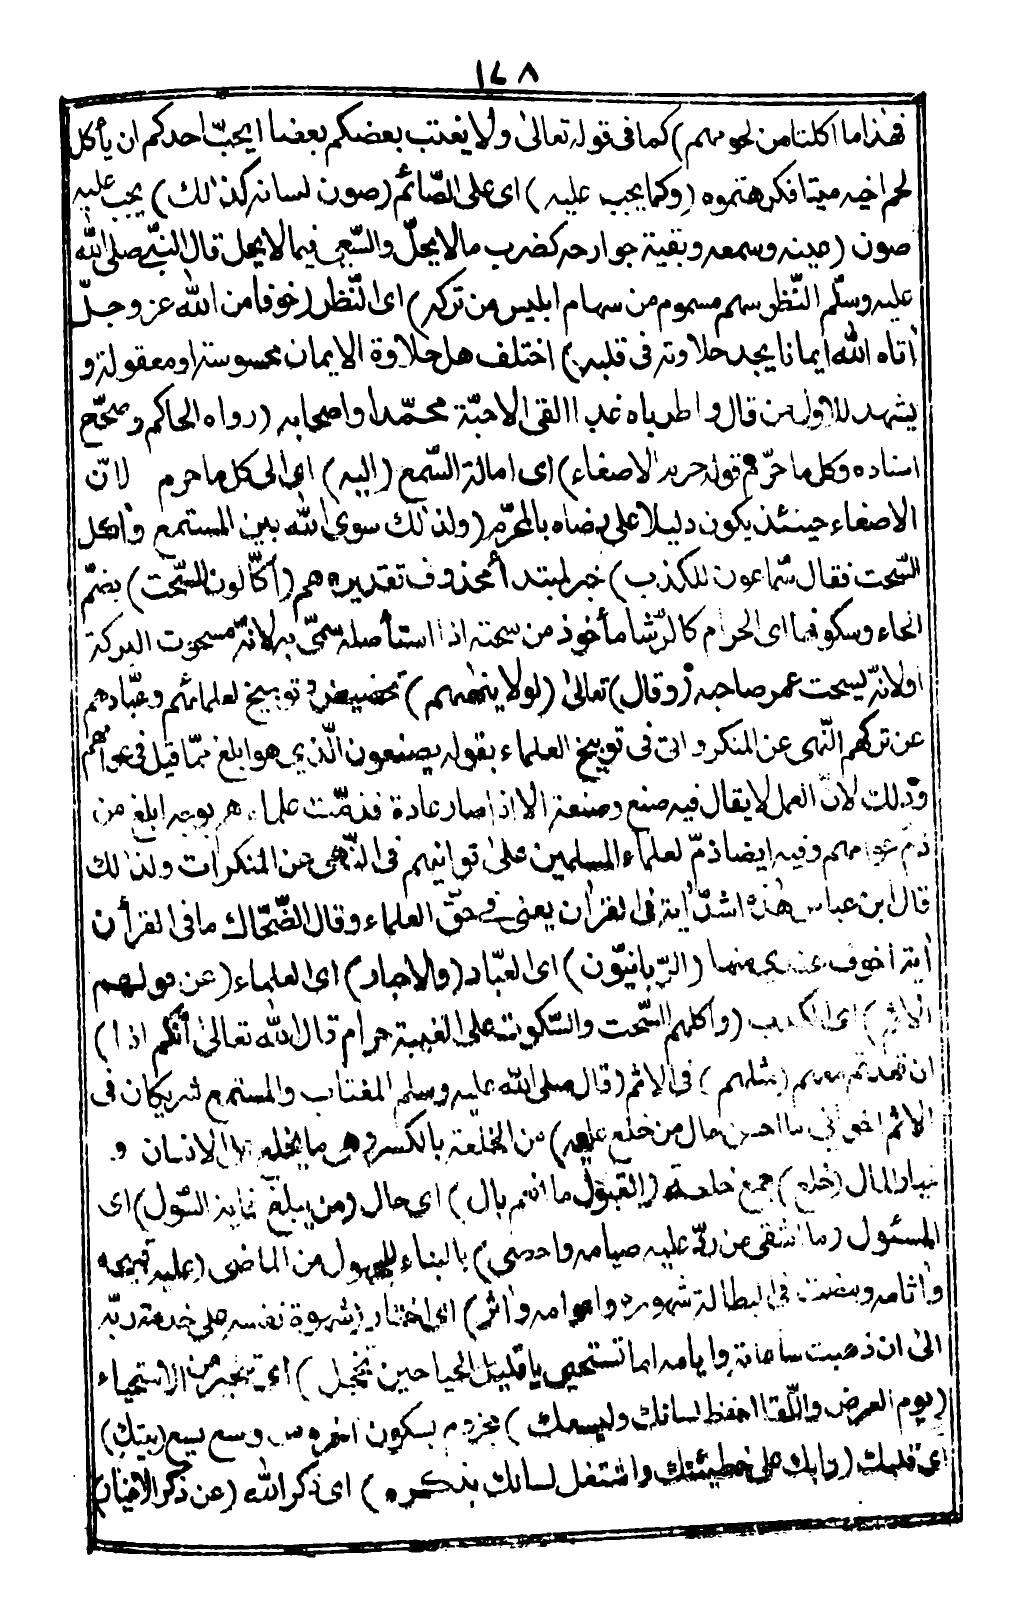 ١٤٨
فهذا ما اكلتا من لحومهم) كما فى قوله تعالىٰ ولا يغتب بعضكم بعضا ايحبّ احدكم ان يأكل
لحم اخيه ميتا فكرهتموه (وكما يجب عليه) اى على الصّائم (صون لسانه كذٰلك) يجب عليه
صون (عينه وسمعه وبقية جوارحه كضرب مالا يحلّ والسّعى فيما لا يحل قال النبىّ صلى الله
عليه وسلّم النّظر سهم مسموم من سهام ابليس من تركه) اى النّظر (خوفا من الله عز وجلّ
أتاه الله ايمانا يجد حلاوته فى قلبه) اختلف هل حلاوة الايمان محسوسة او معقولة و
يشهد للاول من قال واطرباه غدا القى الاحبّة محمّدا واصحابه (رواه الحاكم وصحّح
اسناده وكل ما حرّم قوله حرم الاصغاء) اى امالة السّمع (اليه) اى الى كل ما حرم لانّ
الاصغاء حينئذ يكون دليلا على رضاه بالمحرّم (ولذٰلك سوى الله بين المستمع وأكل
السّحت فقال سمّاعون للكذب) خبر لمبتدأ محذوف تقديره هم (أكّالون للسّحت) بضمّ
الحاء وسكونها اى الحرام كالرّشا مأخوذ من سحته اذا استأصله سمّى به لانّه مسحوت البركة
اولانّه يسحت عمر صاحبه (وقال) تعالىٰ (لولا ينهٰهم) تحضيض وتوبيخ لعلمائهم وعبّادهم
عن تركهم النّهى عن المنكر واتى فى توبيخ العلماء بقوله يصنعون الّذي هو ابلغ ممّا قيل فى عوامهم
وذٰلك لانّ العمل لا يقال فيه صنع وصنعة الا اذا صار عادة فذمّت علماءهم بوجه ابلغ من
ذمّ عوامهم وفيه ايضا ذمّ لعلماء المسلمين علىٰ توانيهم فى النّهى عن المنكرات ولذٰلك
قال ابن عباس هٰذه اشدّ أية فى القرأن يعنى فى حقّ العلماء وقال الضّحّاك ما فى القرأن
أية اخوف عندى منها (الرّبانيّون) اى العبّاد (والاحبار) اى العلماء (عن قولهم
الاثم) اى الكذب (واكلهم السّحت والسّكوت على الغيبة حرام قال الله تعالىٰ أنّكم اذا)
ان قعدتم معهم (مثلهم) فى الاثم (قال صلى الله عليه وسلم المغتاب والمستمع شريكان فى
الاثم اخوانى ما احسن حال من خلع عليه) من الخلعة بالكسر وهى ما يخلع على الانسان و
خيار المال (خلع) جمع خلعة (القبول ما انعم بال) اى حال (من يبلغ غاية السّول) اى
المسئول (ما اشقى من ردّ عليه صيامه واحصى) بالبناء للمجهول من الماضى (عليه قبيحه
وأثامه ومضت فى البطالة شهوره واعوامه وأثر) اى اختار (شهوة نفسه على خدمة ربّه
الىٰ ان ذهبت ساعاته وايامه اما تستحيى يا قليل الحيا حين تخجل) اى تتحير من الاستحياء
(يوم العرض واللّقا احفظ لسانك وليسعك) مجزوم بسكون أخره من وسع يسع (بيتك)
اى قلبك (وابك على خطيئتك واشتغل لسانك بذكره) اى ذكر الله (عن ذكر الاخيار)